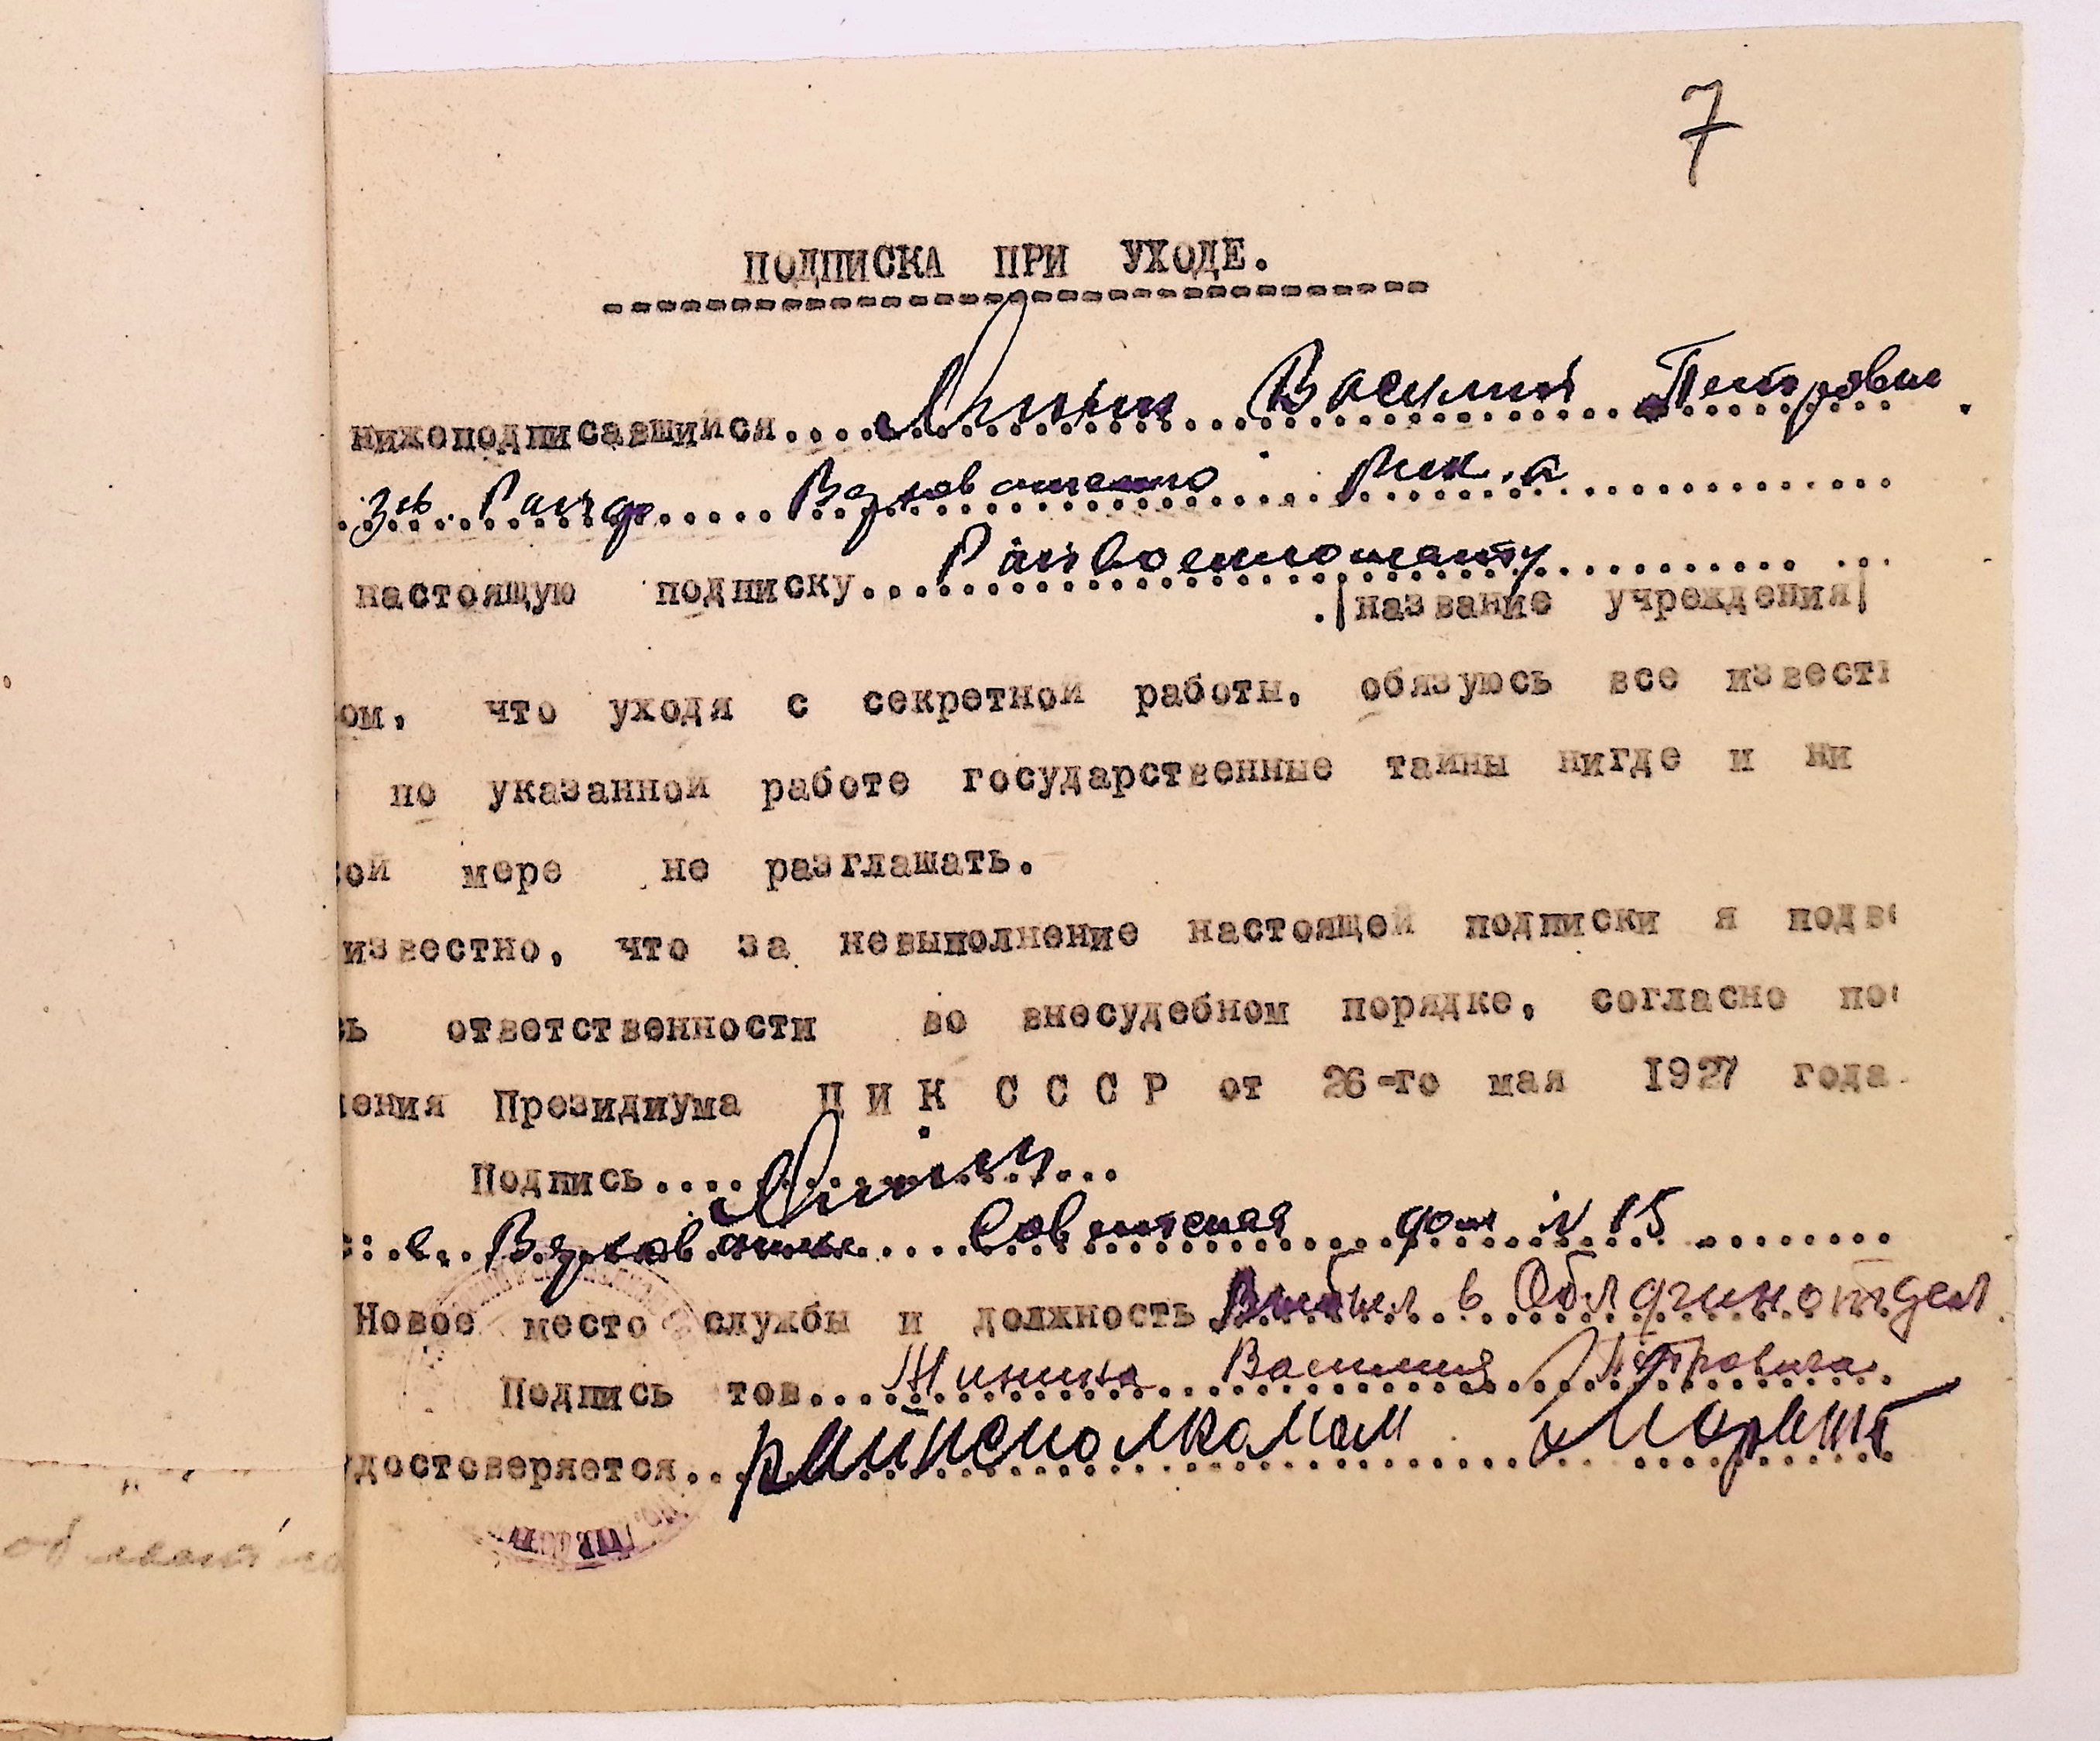 7
ПОДПИСКА ПРИ УХОДЕ.
нижеподписавшийся.... Василий Петрович
Зав. Райфо Взвожского Рик.а
настоящую подписку... Райвоенкомату
.|название учреждения|
ом, что уходя с секретной работы, обязуюсь все извест
по указанной работе государственные тайны нигде и ни
ой мере не разглашать.
известно, что за невыполнение настоящей подписки я подве
сь ответственности во внесудебном порядке, согласно пос
ения Президиума Ц И К С С С Р от 26-го мая 1927 года.
Подпись....
: с. Советская дом № 15
Новое место службы и должность Выбыл в Облфинотдел
Подпись тов... Василия Петровича
удостоверяется.. райисполкомом